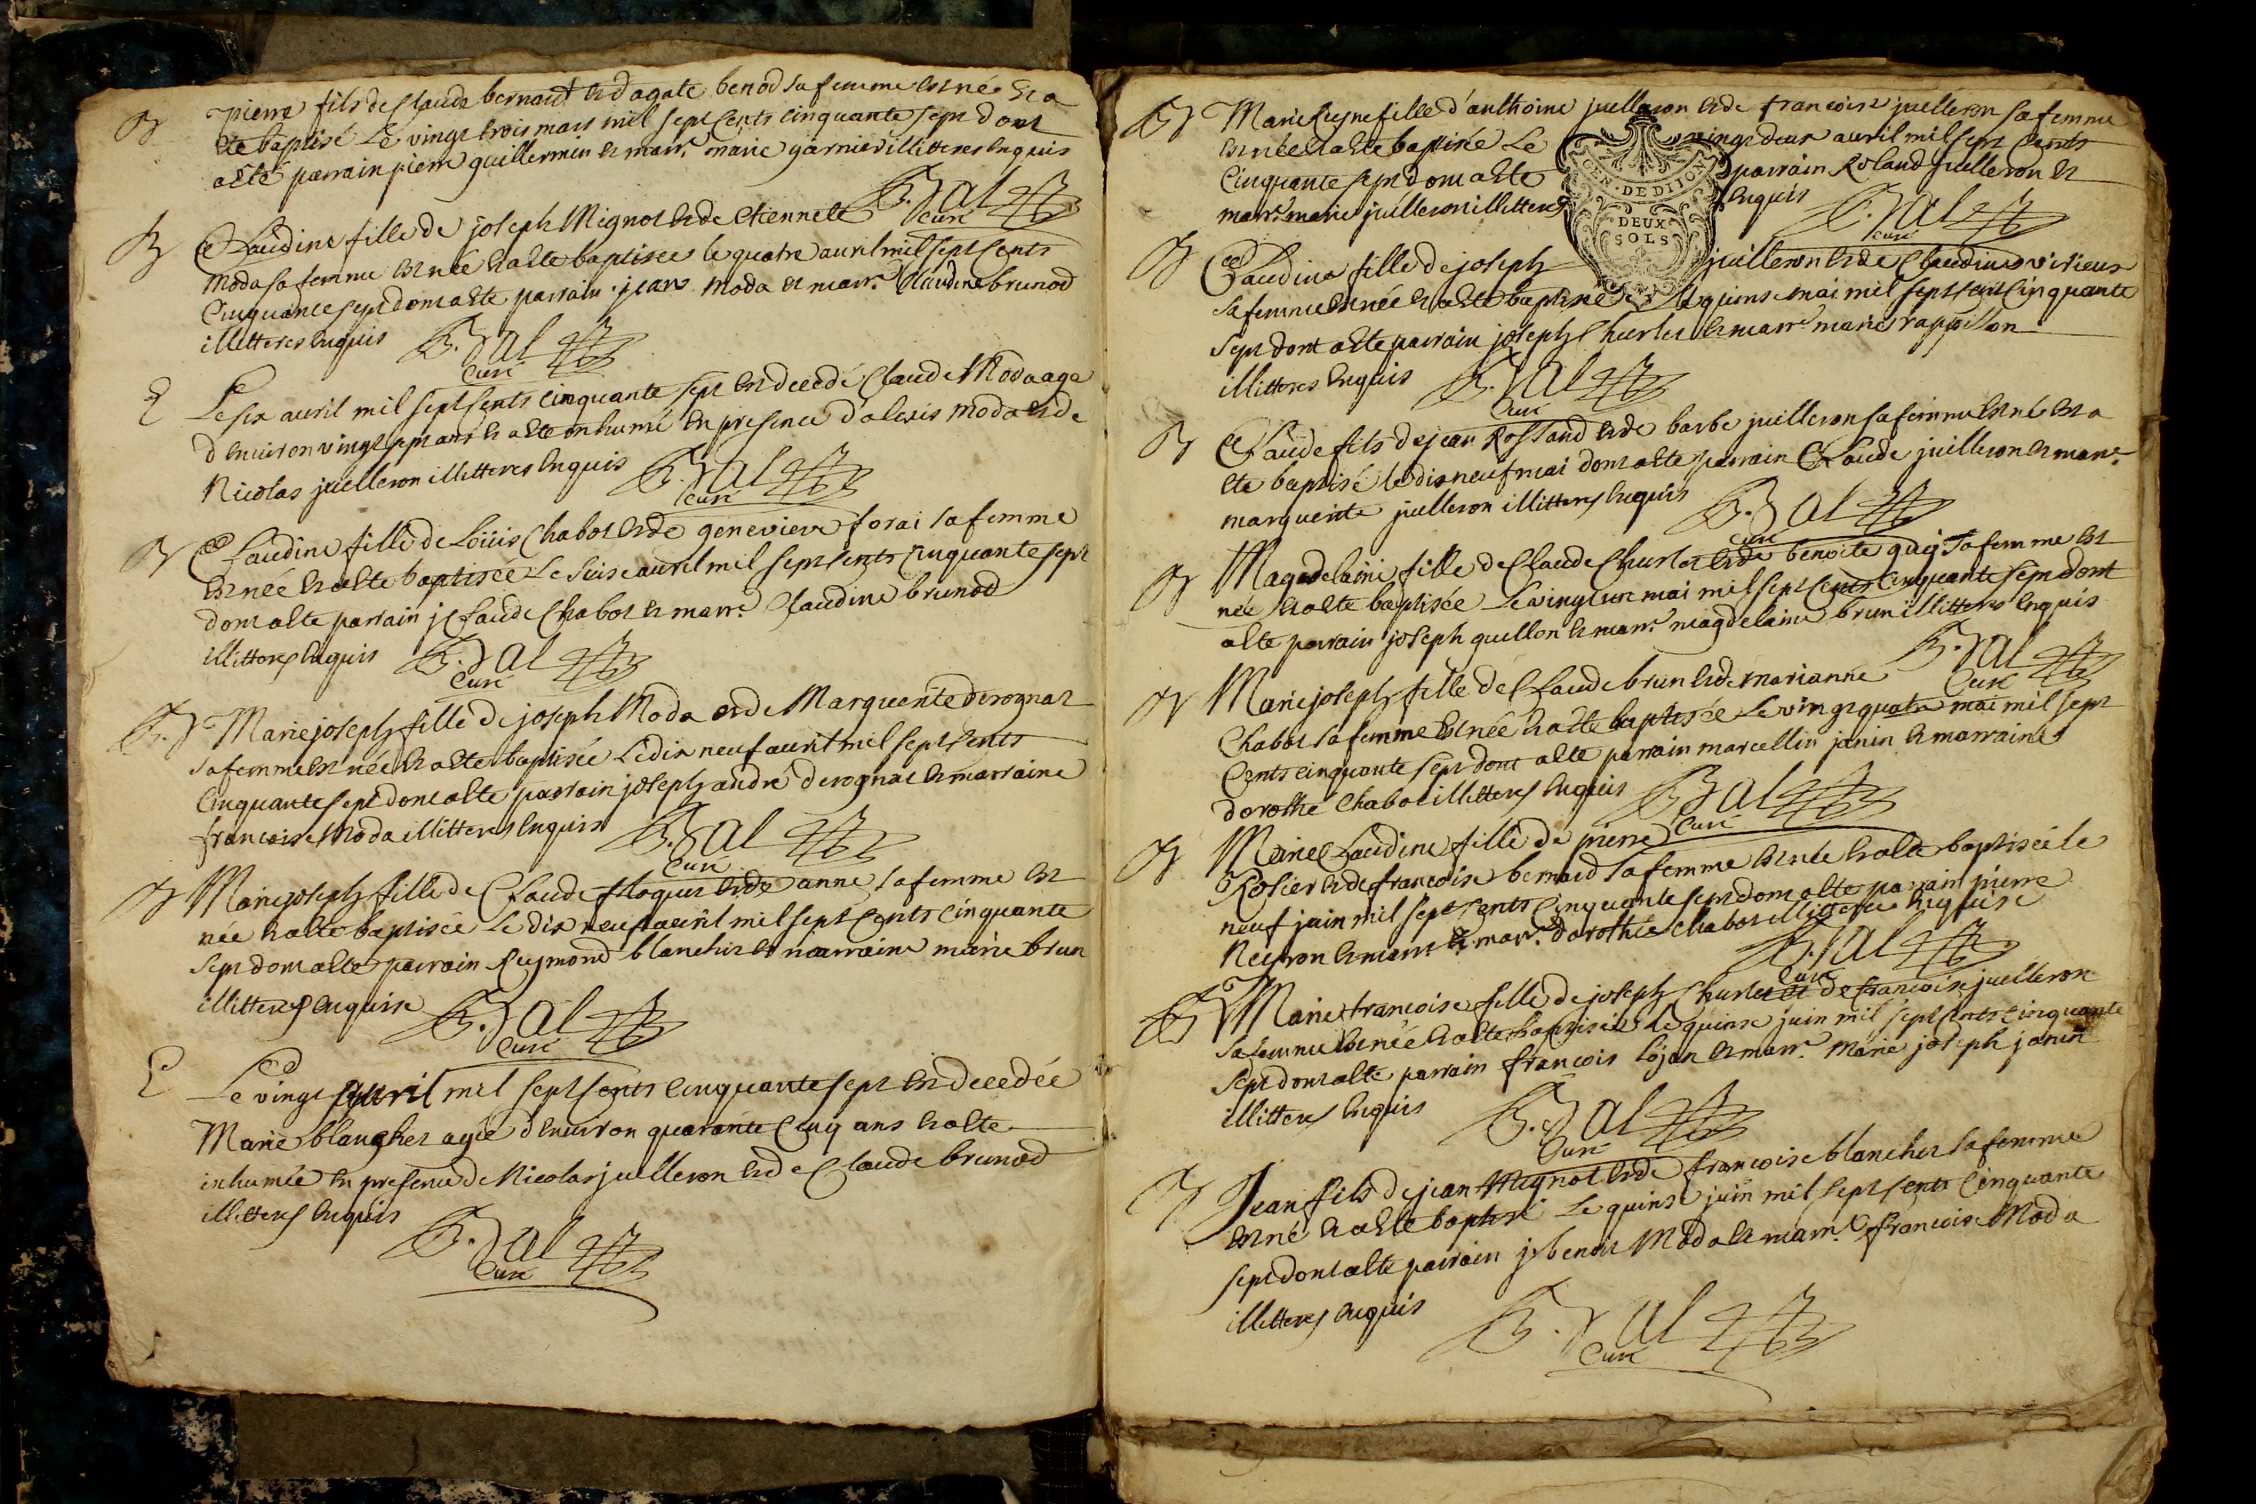 B pierre fils de Claude bernard et d agate benod sa femme est né et a
ete baptisé Le vingt trois mars mil sept cents cinquante sept dont
a été parrain pierre guillermin et marr.e marie garnier illitteres enquis
B. Jal
curé
B Claudine fille de joseph Mignot et de Etiennete
Moda sa femme est née et a ete baptisee le quatre avril mil sept cents
Cinquante sept dont a ete parrain jean moda et marr.e Claudine brunod
illitteres enquis B. Jal
Curé
E Le six avril mil sept cents cinquante sept est decedé Claude Moda age
d environ vingt sept ans et a ete inhumé en presence d'alexis moda et de
Nicolas juilleron illitteres enquis B. Jal
Curé
B Claudine fille de Loüis Chabot et de genevieve forai sa femme
est née et a ete baptisée Le seise avril mil sept cents cinquante sept
dont a ete parrain j Claude Chabot et marr.e Claudine brunod
illitteres enquis B. Jal
Curé
B Marie joseph fille de joseph Moda et de Marguerite derognat
sa femme est née et a ete baptisée Le dix neuf avril mil sept cents
Cinquante sept dont a ete parrain joseph andré derognat et marraine
francoise Moda illitteres enquis B. Jal
Curé
B Marie joseph fille de Claude floquet et de anne sa femme est
née et a ete baptisée Le dix neuf avril mil sept cents cinquante
sept dont a ete parrain Reymond blanchet et marraine marie brun
illitteres enquise B. Jal
Curé
E Le vingt avril mil sept cents cinquante sept est decedée
Marie blanchet agée d environ quarante cinq ans et a ete
inhumée en presence de Nicolas juilleron et de Claude brunod
illitteres enquis
B. Jal
Curé
B Marie fille d'anthoine juilleron et de francoise juilleron sa femme
est née et a ete baptisée Le vingt deux avril mil sept cents
Cinquante sept dont a ete parrain Roland juilleron et
marr.e marie juilleron illitteres enquis B. Jal
curé
GEN. DE DIJON
DEUX
SOLS
B Claudina fille de joseph juilleron et de Claudine vivieux
sa femme est née et a ete baptisée le quinse mai mil sept cent cinquante
sept dont a ete parrain joseph Churlet et marr.e marie rappillon
illitteres enquis B. Jal
Curé
B Claude fils de jean Rolland et de barbe juilleron sa femme est né et a
ete baptisé le dix neuf mai dont a ete parrain Claude juilleron et marr.e
marguerite juilleron illitteres enquis B. Jal
Curé
B Magdelaine fille de Claude Churlet et de benoite guy sa femme est
née et a ete baptisée Le vingt un mai mil sept cents cinquante sept dont
a ete parrain joseph guillon et marr.e magdelaine brun illitteres enquis
B. Jal
Curé
B Marie joseph fille de Claude brun et de marianne
Chabot sa femme est née et a ete baptisée Le vingt quatre mai mil sept
Cents cinquante sept dont a ete parrain marcellin janin et marraine
dorothé Chabot illitteres enquis B. Jal
Curé
B Marie Claudine fille de pierre
Rosier et de francoise bernard sa femme est née et a ete baptisée le
neuf juin mil sept cents cinquante sept dont a ete parrain pierre
Neyron et marr.e dorothée Chabot illitteres enquise
B. Jal
Curé
B Marie francoise fille de joseph Churlet et de francoise juilleron
sa femme est née et a ete baptisée Le quinse juin mil sept cents cinquante
sept dont a ete parrain francois Lojan et marr.e Marie joseph janin
illitteres enquis B. Jal
Curé
B Jean fils de jean Mignot et de francoise blanchet sa femme
est né et a ete baptisé Le quinse juin mil sept cents cinquante
sept dont a ete parrain j benoit Moda et marr.e francoise Moda
illitteres enquis B. Jal
Curé